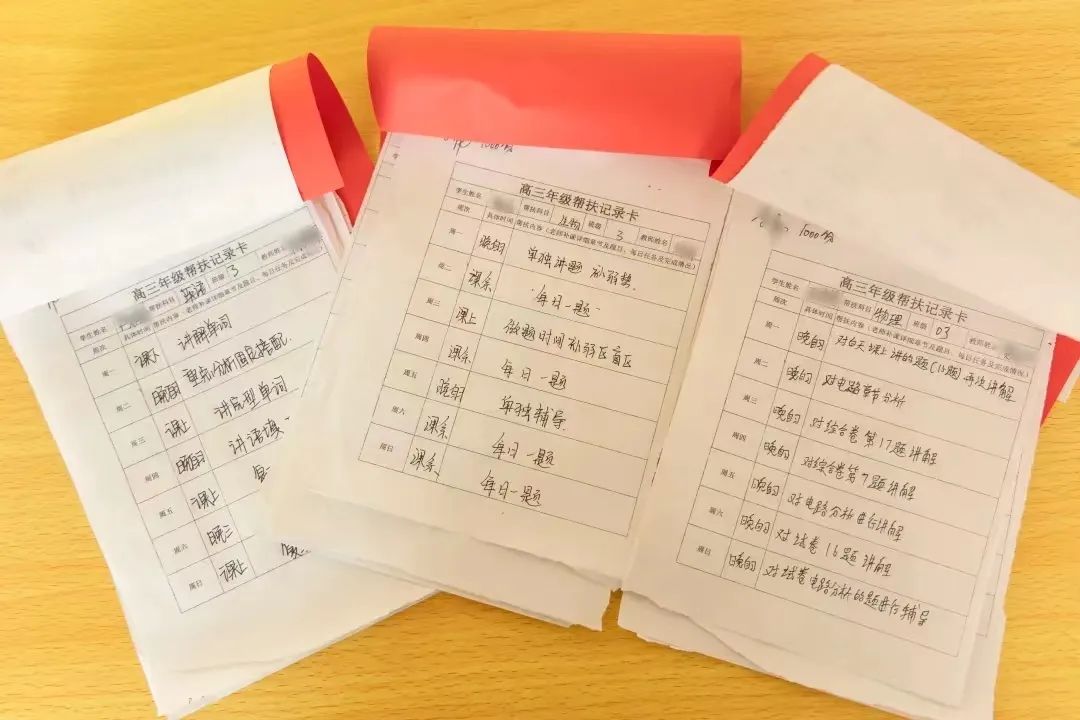 高三年级帮扶记录卡
学生姓名 帮扶科目 英语 班级 3 教师姓名
周次 具体时间 帮扶内容（老师补课详细章节及题目、每日任务及完成情况）
周一 课上 讲解单词
周二 晚自 重点分析固定搭配
周三 课上 讲完型单词
周四 晚自 讲语填
周五 课上
周六 晚三
周日 课上
1000份
高三年级帮扶记录卡
学生姓名 帮扶科目 生物 班级 3 教师姓名
周次 具体时间 帮扶内容（老师补课详细章节及题目、每日任务及完成情况）
周一 晚自 单独讲题 补弱势
周二 课余 每日一题
周三 课上 做题时间补弱区盲区
周四 课余 每日一题
周五 晚自 单独辅导
周六 课余 每日一题
周日 课余 每日一题
1000份
高三年级帮扶记录卡
学生姓名 帮扶科目 物理 班级 03 教师姓名
周次 具体时间 帮扶内容（老师补课详细章节及题目、每日任务及完成情况）
周一 晚自 对白天课上讲的题(16题)再次讲解
周二 晚自 对电路章节分析
周三 晚自 对综合卷第17题讲解
周四 晚自 对综合卷第7题讲解
周五 晚自 对电路分析进行讲解
周六 晚自 对试卷16题讲解
周日 晚自 对试卷电路分析的题进行辅导